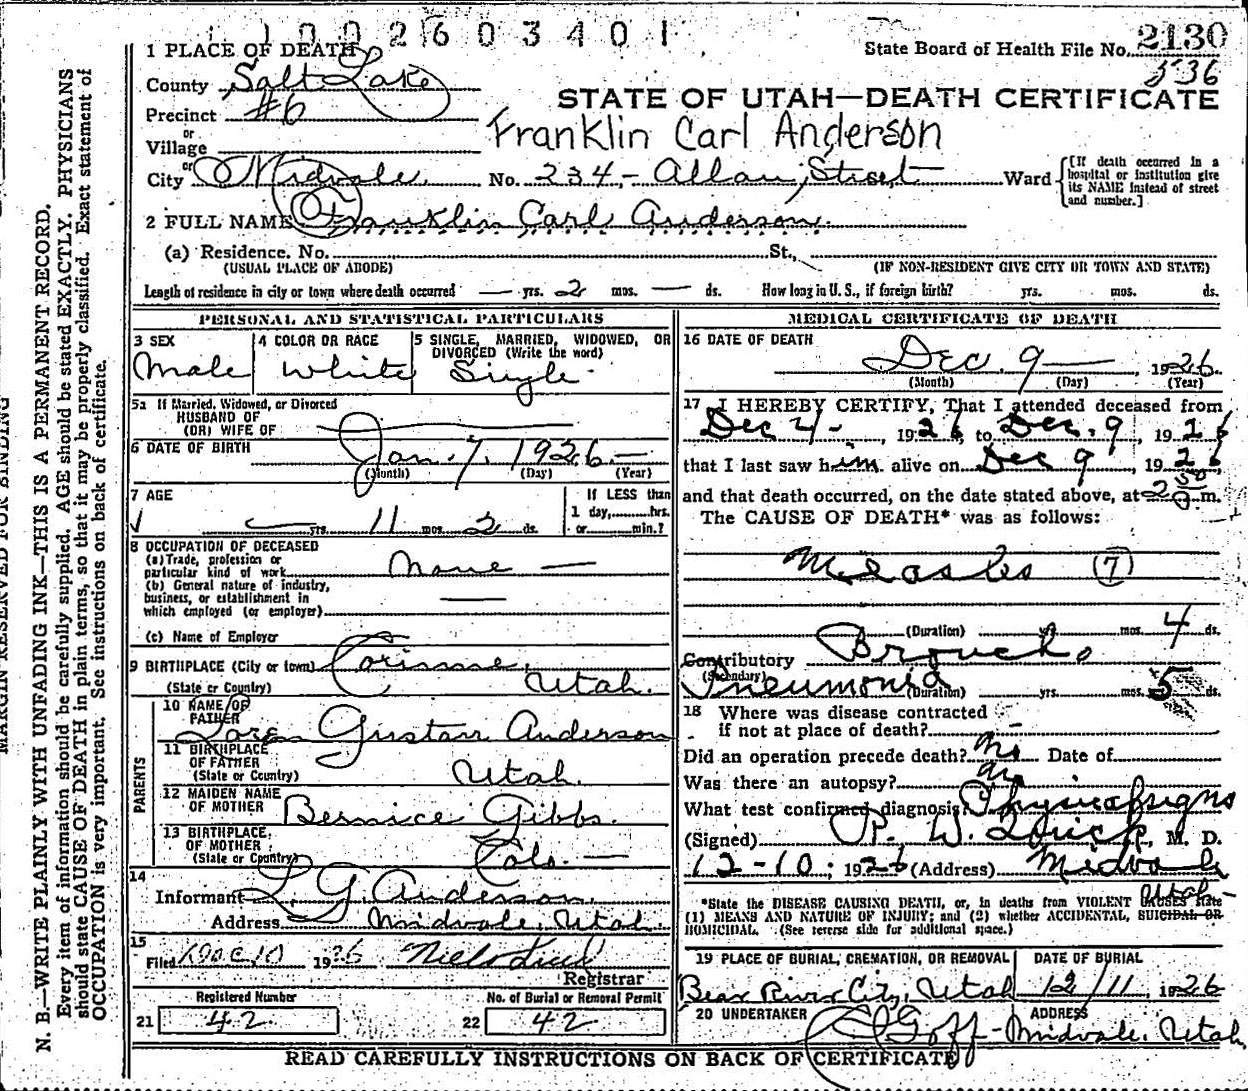 1 1 0 0 2 6 0 3 4 0 1
1 PLACE OF DEATH
State Board of Health File No. 2130
536
County Salt Lake
STATE OF UTAH—DEATH CERTIFICATE
Precinct #6
or
Village
Franklin Carl Anderson
or
City Midvale No. 234- Allan, Street Ward
[If death occurred in a hospital or institution give its NAME instead of street and number.]
2 FULL NAME Franklin Carl Anderson
(a) Residence. No. St.,
(USUAL PLACE OF ABODE) (IF NON-RESIDENT GIVE CITY OR TOWN AND STATE)
Length of residence in city or town where death occurred — yrs. 2 mos. — ds. How long in U. S., if foreign birth? yrs. mos. ds.
PERSONAL AND STATISTICAL PARTICULARS
3 SEX
Male
4 COLOR OR RACE
White
5 SINGLE, MARRIED, WIDOWED, OR
DIVORCED (Write the word)
Single
5a If Married, Widowed, or Divorced
HUSBAND OF
(OR) WIFE OF
6 DATE OF BIRTH Jan. 7, 1926 —
(Month) (Day) (Year)
7 AGE
yrs. 11 mos. 2 ds.
If LESS than
1 day, hrs.
or min.?
8 OCCUPATION OF DECEASED
(a) Trade, profession or
particular kind of work None —
(b) General nature of industry,
business, or establishment in
which employed (or employer)
(c) Name of Employer
9 BIRTHPLACE (City or town) Corinne,
(State or Country) Utah.
PARENTS
10 NAME OF
FATHER
Lars Gustav Anderson
11 BIRTHPLACE
OF FATHER
(State or Country) Utah.
12 MAIDEN NAME
OF MOTHER Bernice Gibbs.
13 BIRTHPLACE
OF MOTHER
(State or Country) Colo. —
14
Informant L. G. Anderson.
Address Midvale, Utah.
15
Filed Dec 10 1926
Registrar
Registered Number
21 42
No. of Burial or Removal Permit
22 42
MEDICAL CERTIFICATE OF DEATH
16 DATE OF DEATH
Dec. 9 — , 1926
(Month) (Day) (Year)
17 I HEREBY CERTIFY, That I attended deceased from
Dec 4 - , 1926, to Dec. 9 , 1926
that I last saw him alive on Dec 9 , 1926,
and that death occurred, on the date stated above, at 2 50 m.
The CAUSE OF DEATH* was as follows:
Measles (7)
(Duration) yrs. mos. 4 ds.
Contributory Broncho
(Secondary)
Pneumonia (Duration) yrs. mos. 5 ds.
18 Where was disease contracted
if not at place of death? —
Did an operation precede death? No Date of
Was there an autopsy? No
What test confirmed diagnosis Physical signs
(Signed) P. W. , M. D.
12-10 ; 1926 (Address) Midvale
Utah -
*State the DISEASE CAUSING DEATH, or, in deaths from VIOLENT CAUSES state
(1) MEANS AND NATURE OF INJURY; and (2) whether ACCIDENTAL, SUICIDAL OR
HOMICIDAL. (See reverse side for additional space.)
19 PLACE OF BURIAL, CREMATION, OR REMOVAL
Bear River City, Utah
DATE OF BURIAL
12/11, 1926
20 UNDERTAKER
Goff -
ADDRESS
Midvale, Utah
READ CAREFULLY INSTRUCTIONS ON BACK OF CERTIFICATE
MARGIN RESERVED FOR BINDING
N. B.—WRITE PLAINLY WITH UNFADING INK—THIS IS A PERMANENT RECORD.
Every item of information should be carefully supplied. AGE should be stated EXACTLY. PHYSICIANS
should state CAUSE OF DEATH in plain terms, so that it may be properly classified. Exact statement of
OCCUPATION is very important. See instructions on back of certificate.